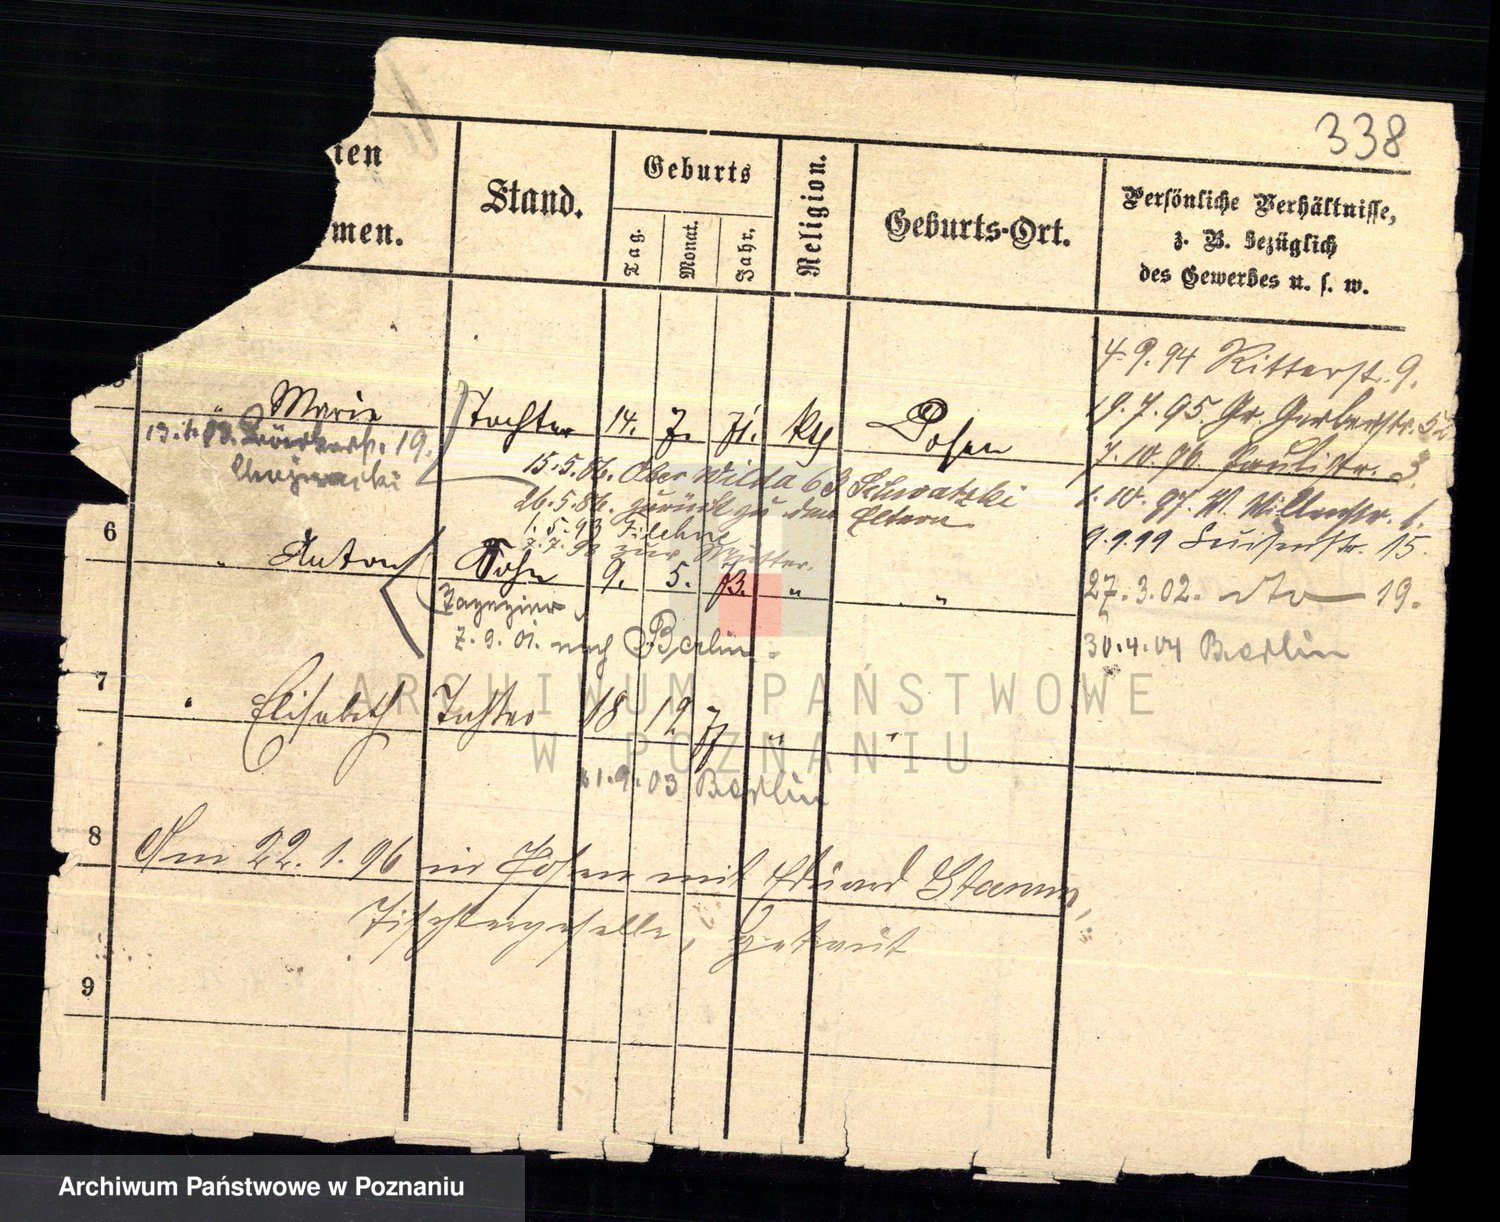 338
ten
men.
Stand.
Geburts
Tag.
Monat.
Jahr.
Religion.
Geburts-Ort.
Persönliche Verhältnisse,
z. B. bezüglich
des Gewerbes u. s. w.
4.9.94 Ritterstr. 9.
19.7.95. Gr. Gerberstr. 52
" Marie Tochter 14. 7. 71. kth Posen
7.10.96. Paulistr. 3.
19.
15.5.86. Ober Wilda 63 Schwatzki
26.5.86. zurück zu den Eltern
1.10.97. W. 1.
1.5.93 Filehne
7.7.93 zur Mutter.
9.9.99 Luisenstr. 15.
6 " Anton Sohn 9. 5. 73. " "
27.3.02. dto 19.
Tapezier
7.9.01. nach Berlin.
30.4.04 Berlin
7 " Elisabeth Tochter 18 12 77 " "
1.9.03 Berlin
8 Am 22.1.96 in Posen mit Eduard Stamm,
Tischlergeselle, getraut
9
ARCHIWUM PAŃSTWOWE
W POZNANIU
Archiwum Państwowe w Poznaniu